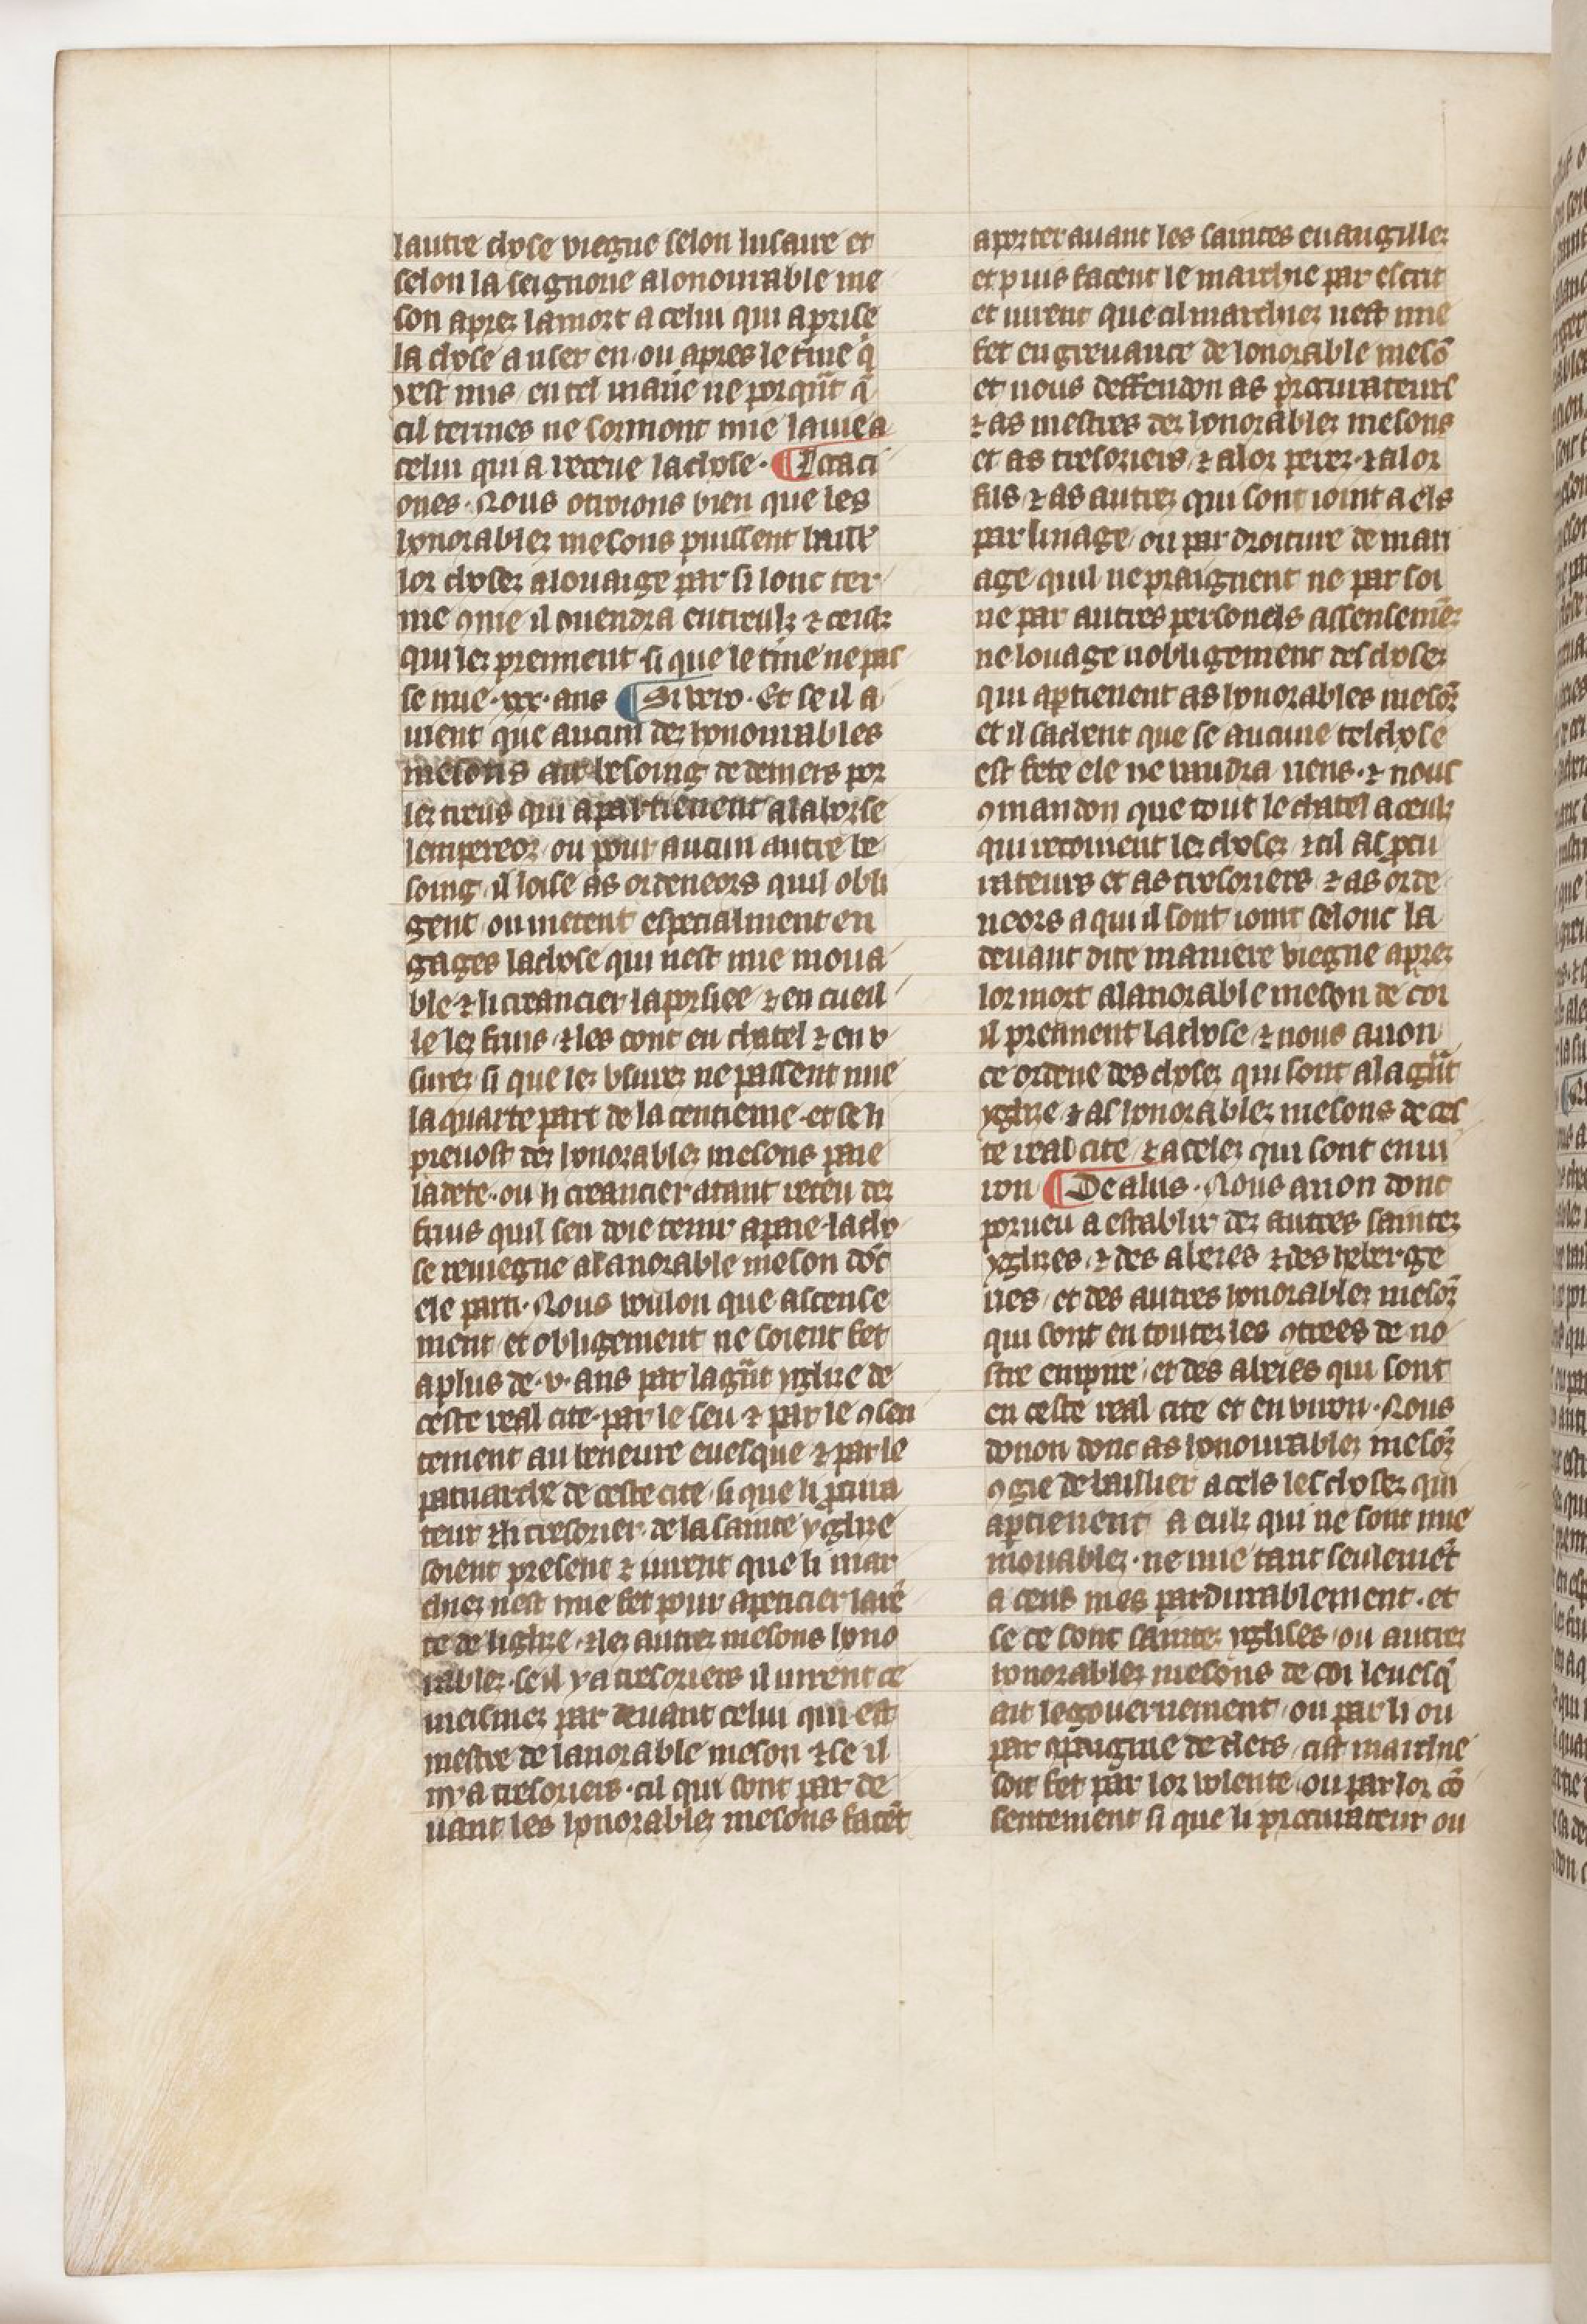 lautre chose viegne selon lusaire et
selon la seignorie alonourable me
son aprez lamort a celui qui a prise
la chose a user en ou apres le tme q̇
yest mis en tel manie ne porqūt q̄
cil termes ne sormont mie lauie a
celui qui a receue lachose · ¶ Locaci
ones · Nous otroions bien que les
honorablez mesons puissent baill'
lor chosez alouaige par si lonc ter
me ꝯme il ꝯuendra entreulz ⁊ ceulz
qui lez prennent si que le tme ne pas
se mie · xxx · ans ¶ Si vero · Et se il a
uient que aucun dez honourables
mesons ait besoing de deniers por
lez treus qui apartienent alaborse
lempereor ou pour aucun autre be
soing il loise as ordeneors quil obli
gent ou metent especialment en
gages lachose qui nest mie moua
ble ⁊ li creancier laporsiee ⁊ en cueil
le lez fruis ⁊ les cont en chatel ⁊ en v
surez si que lez vsurez ne passent mie
la quarte part de la centieme et se li
preuost dez honorablez mesons paie
ladete · ou li creancier atant receu dez
fruis quil sen doie tenir apaie lacho
se reuiegne alanorable meson dōt
ele parti · Nous voulon que assense
ment et obligement ne soient fet
aplus de · v · ans par lagūt yglise de
ceste real cite par le seu ⁊ par le ꝯsen
tement au beneure euesque ⁊ par le
patriarche de ceste cite si que li ꝓcura
teur ⁊li tresorier de la sainte yglise
soient present ⁊ iurent que li mar
chiez nest mie fet pour apeticier larē
te de liglise ⁊lez autrez mesons hono
rablez se il y a tresoriers il iurent ce
meismez par deuant celui qui est
mestre de lanorable meson ⁊se il
ny a tresoriers cil qui sont par de
uant les honorablez mesons facēt
aporter auant les saintes euuangillez
et puis facent le marchie par escrit
et iurent que cil marchiez nest mie
fet en greuance de lonorable mesō
et nous deffendon as procurateurs
⁊ as mestres dez honorablez mesons
et as tresoriers ⁊ alor perez ⁊ alor
fils ⁊ as autrez qui sont ioint a els
par linage ou par droiture de mari
age quil ne praignent ne par soi
ne par autres personels assensemēz
ne louage nobligement des chosez
qui aptienent as honorables mesōz
et il sachent que se aucune tel chose
est fete ele ne vaudra riens · ⁊ nous
ꝯmandon que tout le chatel a ceulz
qui recoiuent lez chosez ⁊ cil as ꝓcu
rateurs et as tresoriers ⁊ as orde
neors a qui il sont ioint selonc la
deuant dite maniere viegne aprez
lor mort alanorable meson de coi
il prennent lachose ⁊ nous auon
ce ordene des chosez qui sont alagūt
yglise ⁊ as honorablez mesons de ces
te real cite ⁊ acelez qui sont enui
ron ¶ De aliis · Nous auon donc
porueu a establir dez autres saintez
yglises ⁊ des abeies ⁊ des heberge
ries et des autres honorablez mesōz
qui sont en toutez les ꝯtrees de no
stre empire et des abeies qui sont
en ceste real cite et enuiron · Nous
donon donc as honourablez mesōz
ꝯgie de baillier a cels les chosez qui
aptienent a eulz qui ne sont mie
mouablez · ne mie tant seulemēt
a cens mes pardurablement · et
se ce sont saintez yglises ou autrez
honorablez mesons de coi leuesq̄
ait legouuernement ou par li ou
par ꝯpaignie de clers cist marchie
soit fet par lor volente ou par lor cō
sentement si que li procurateur ou